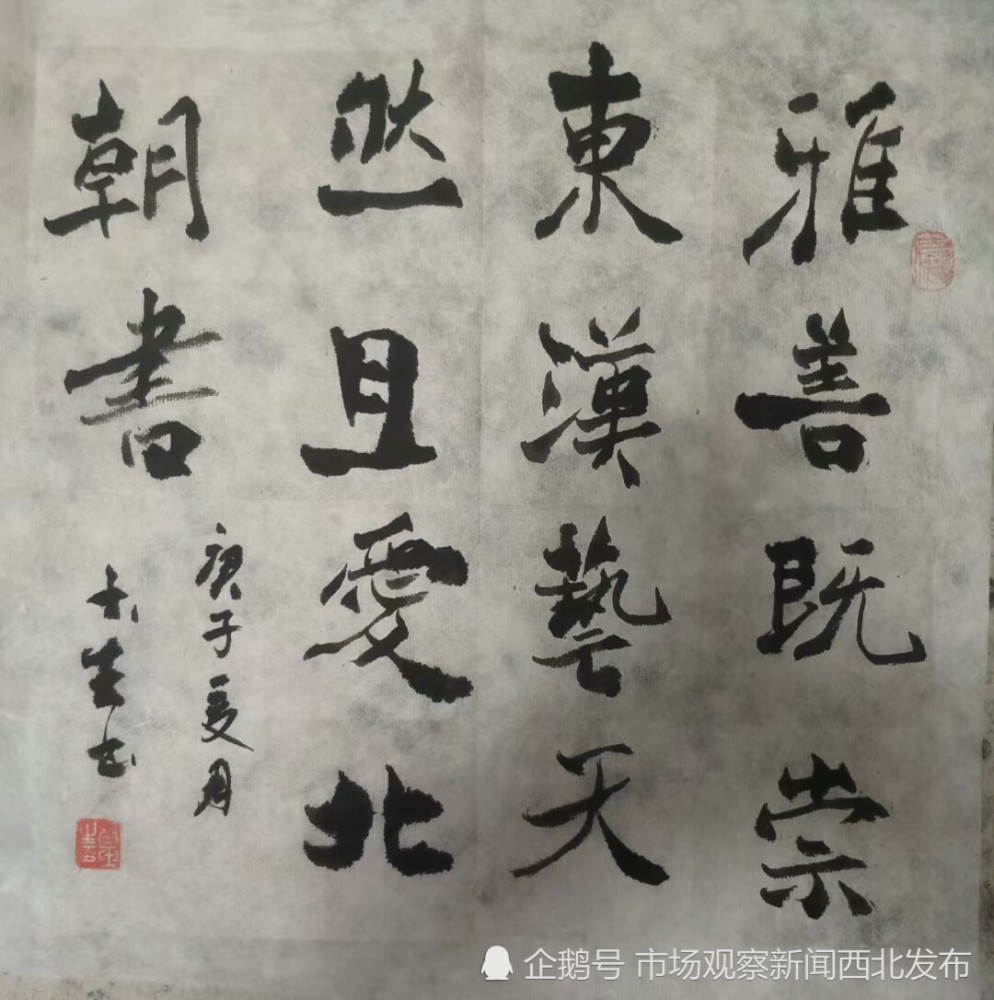 雅善既崇
東漢藝天
然且愛北
朝書
庚子夏月
生书
企鹅号 市场观察新闻西北发布